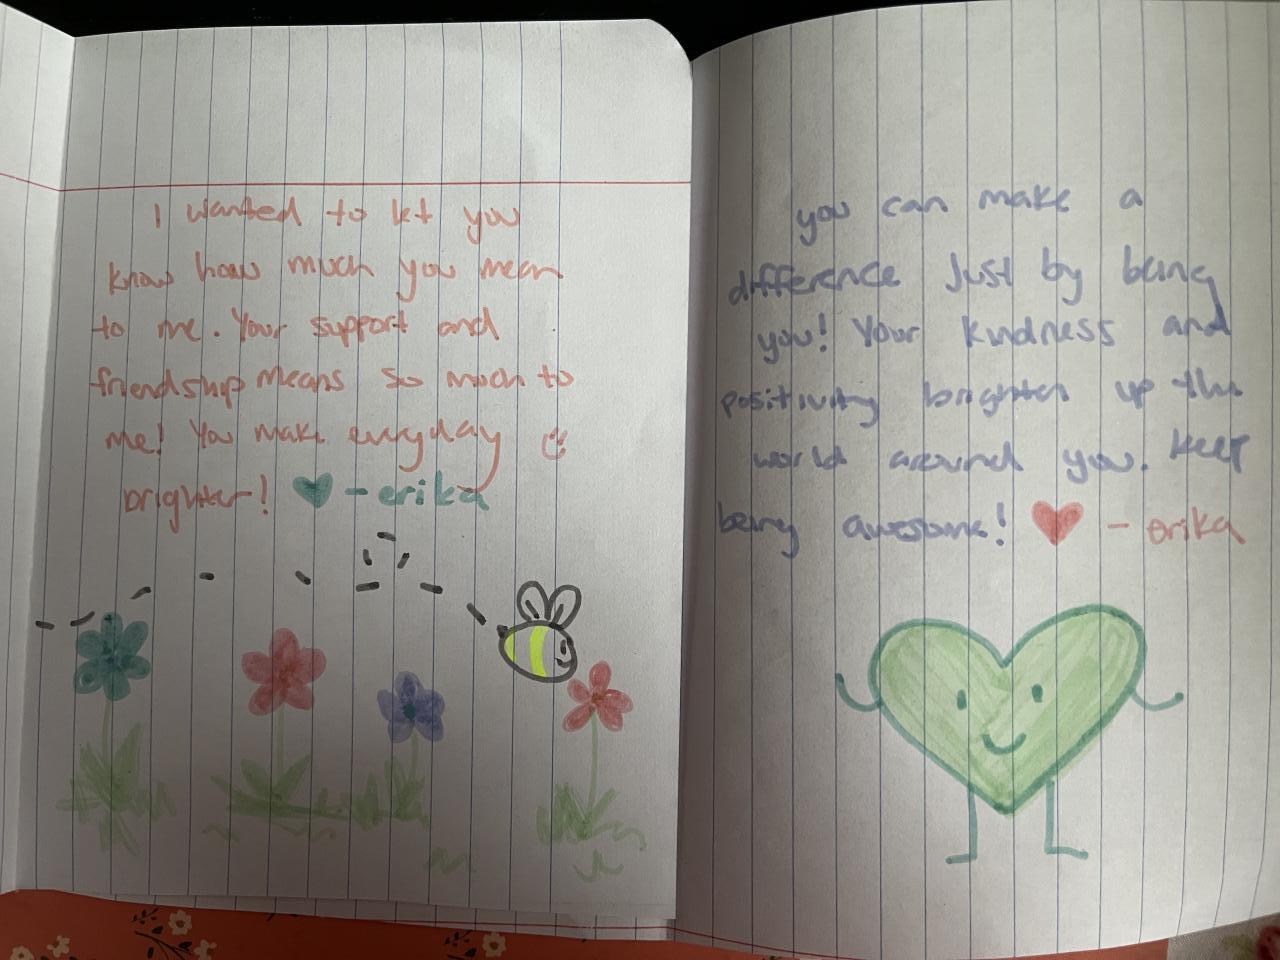 I wanted to let you
know how much you mean
to me. Your support and
friendship means so much to
me! You make everyday
brighter! ♥ - erika
you can make a
difference just by being
you! Your kindness and
positivity brighten up the
world around you. Keep
being awesome! ♥ - erika